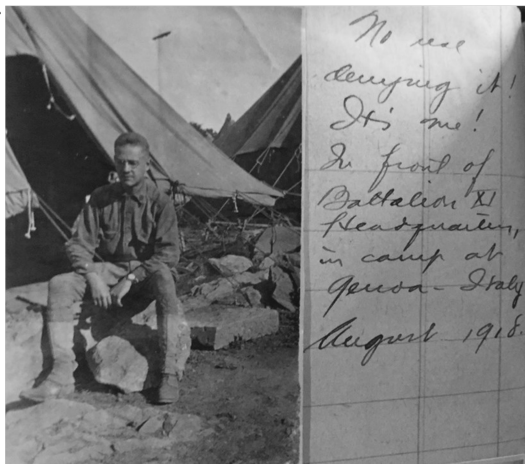 No use
denying it!
It's me!
In front of
Battalion XI
Headquarters,
in camp at
Genoa - Italy
August 1918.